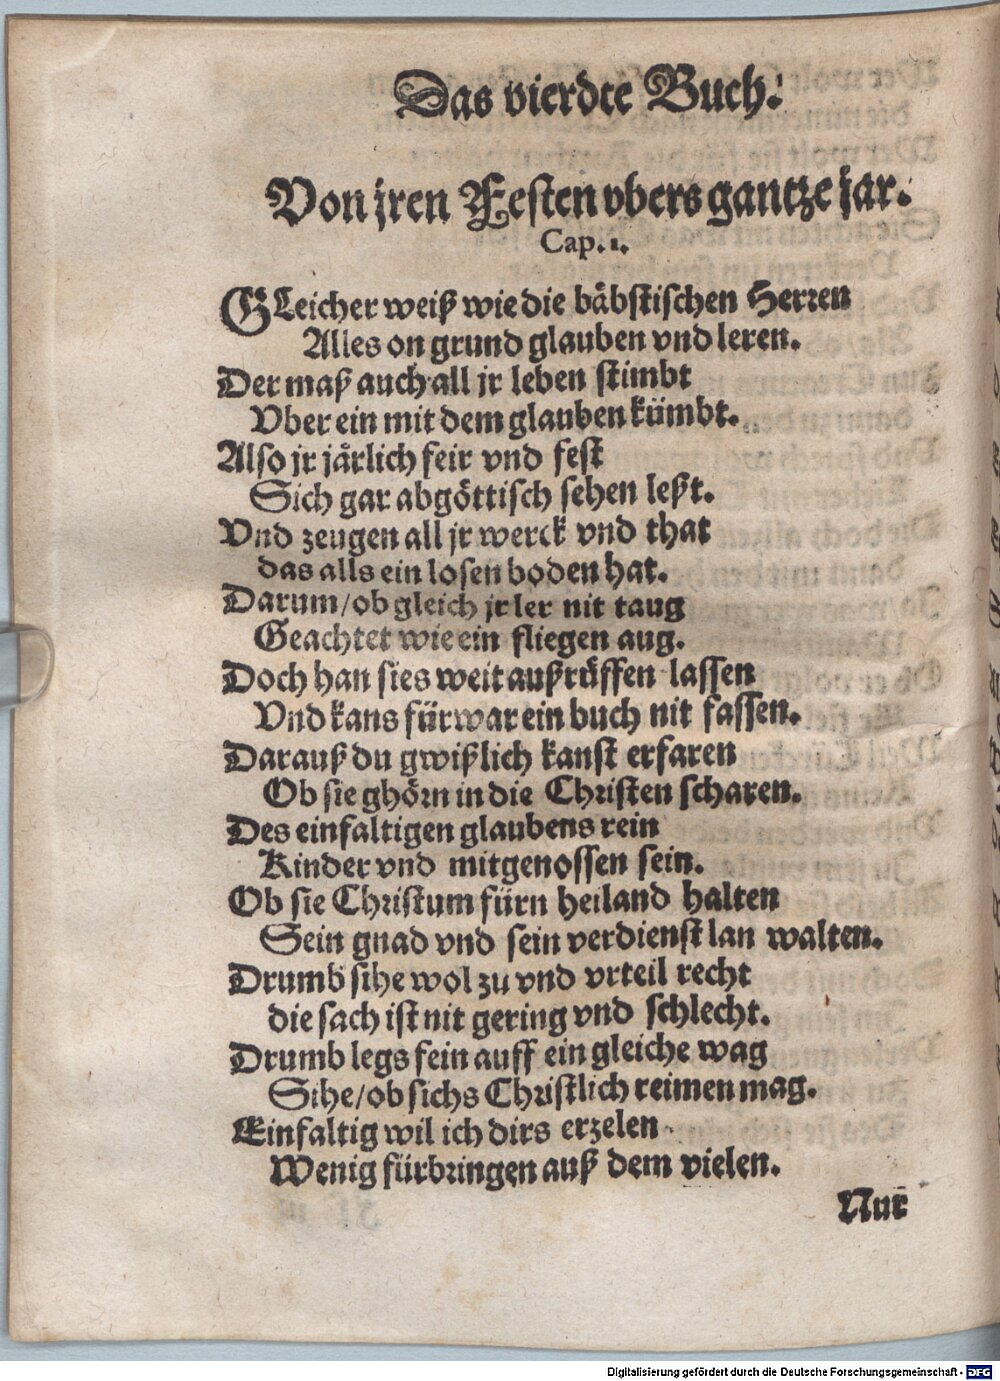 Das vierdte Buch.
Von jren Festen vbers gantze jar.
Cap. 1.
GLeicher weiß wie die bäbstischen Herren
Alles on grund glauben vnd leren.
Der maß auch all jr leben stimbt
Vber ein mit dem glauben kümbt.
Also jr järlich feir vnd fest
Sich gar abgöttisch sehen leßt.
Vnd zeugen all jr werck vnd that
das alls ein losen boden hat.
Darum/ob gleich jr ler nit taug
Geachtet wie ein fliegen aug.
Doch han sies weit außrüffen lassen
Vnd kans fürwar ein buch nit fassen.
Darauß du gwißlich kanst erfaren
Ob sie ghörn in die Christen scharen.
Des einfaltigen glaubens rein
Kinder vnd mitgenossen sein.
Ob sie Christum fürn heiland halten
Sein gnad vnd sein verdienst lan walten.
Drumb sihe wol zu vnd vrteil recht
die sach ist nit gering vnd schlecht.
Drumb legs fein auff ein gleiche wag
Sihe/ob sichs Christlich reimen mag.
Einfaltig wil ich dirs erzelen
Wenig fürbringen auß dem vielen.
Nur
Digitalisierung gefördert durch die Deutsche Forschungsgemeinschaft - DFG